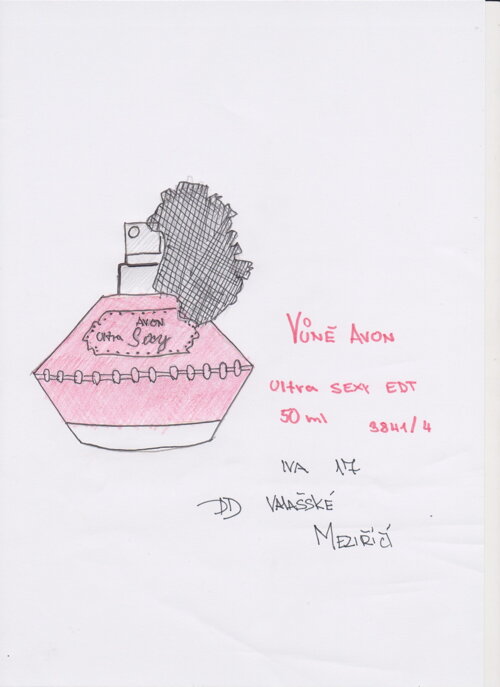 AVON
Ultra Sexy
VŮNĚ AVON
Ultra SEXY EDT
50 ml 3841/4
IVA 17
DD VALAŠSKÉ
MEZIŘÍČÍ